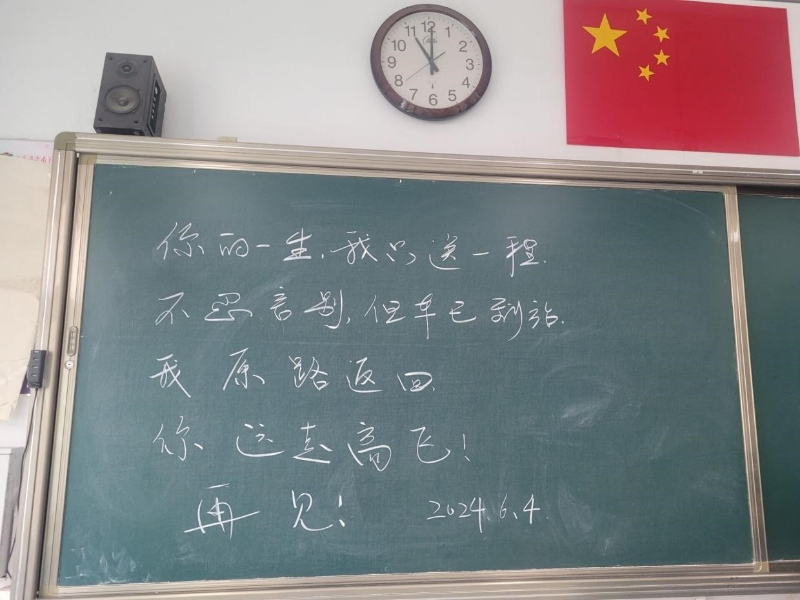 12
1
2
3
4
5
6
7
8
9
10
11
你的一生,我只送一程.
不忍言别,但车已到站.
我原路返回
你远走高飞!
再见! 2024.6.4